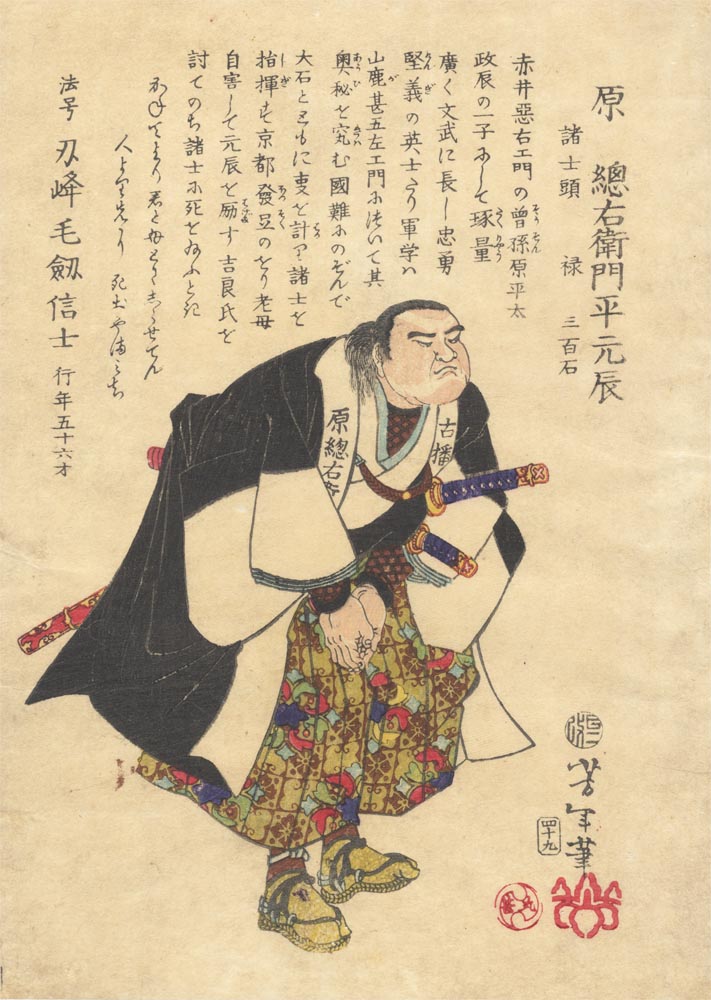 原 總右衛門平元辰
諸士頭 禄 三百石
赤井惡右エ門の曾孫原平太
政辰の一子にして琢量
廣く文武に長し忠勇
堅義の英士たり軍学ハ
山鹿甚五左エ門に決いて其
奥秘を究む國難にのぞんで
大石とともに事を計り諸士を
指揮す京都發足のをり老母
自害して元辰を励す吉良氏を
討てのち諸士に死を給ふとき
君と母
人より先に 死出の山みち
法号 刃峰毛劔信士 行年五十六才
原總右衛
古播
芳年筆
四十九